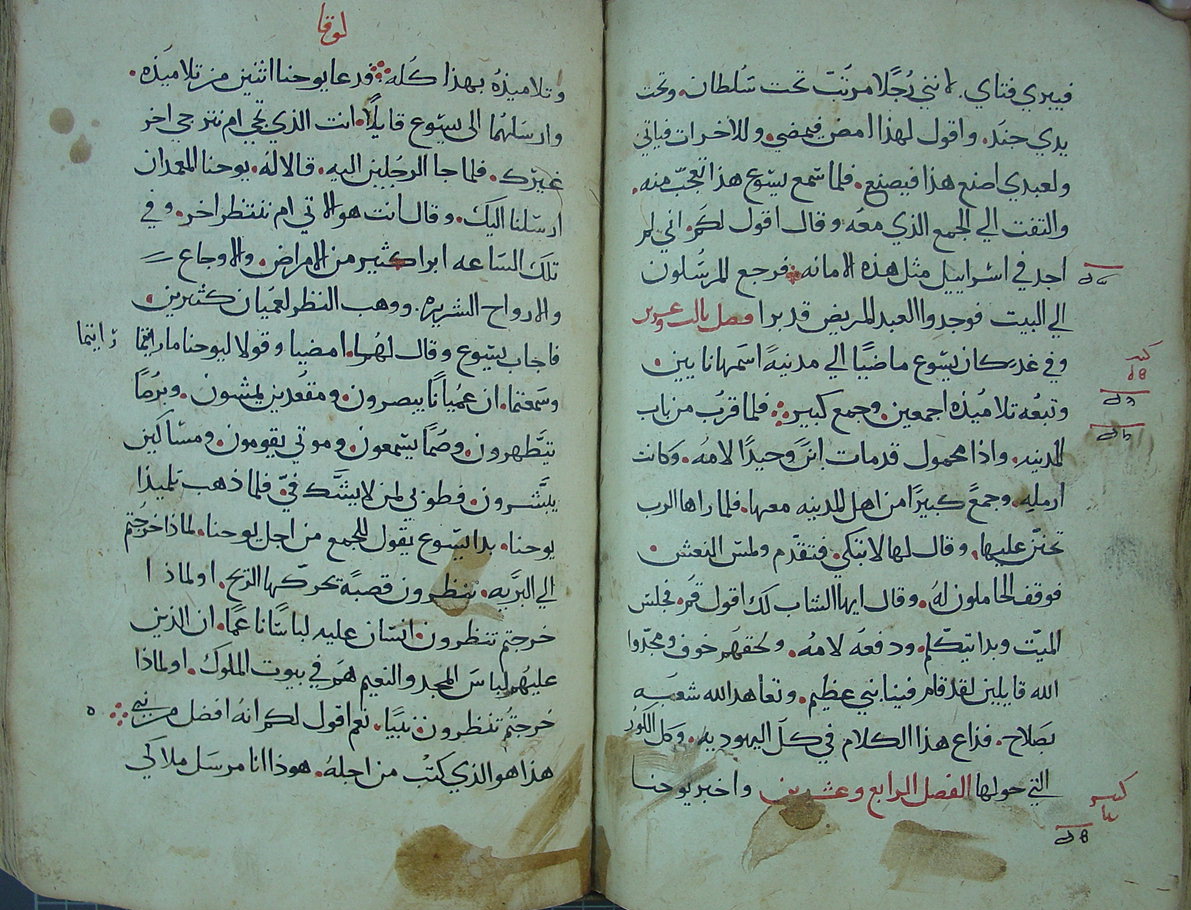 فيبري فتاي. لانني رجلا مرتب تحت سلطان. وتحت
يدي جند. واقول لهذا امض فيمضي. وللاخر ات فياتي
ولعبدي اصنع هذا فيصنع. فلما سمع يسوع هذا تعجب منه.
والتفت الي الجمع الذي معه وقال اقول لكم. اني لم
اجد في اسراييل مثل هذه الامانه. فرجع المرسلون
الي البيت فوجدوا العبد المريض قد برا فصل
وفي غد. كان يسوع ماضيًا الي مدينة اسمها نايين.
وتبعه تلاميذه اجمعين. وجمع كبير. فلما قرب من باب
المدينه. واذا محمول قد مات ابن وحيدًا لامه. وكانت
ارمله. وجمع كبيرًا من اهل المدينه معها. فلما راها الرب
تحنن عليها. وقال لها لا تبكي. فتقدم ولمس النعش.
فوقف الحاملون له. وقال ايها الشاب لك اقول قم. فجلس
الميت وبدا يتكلم. ودفعه لامه. ولحقهم خوف ومجدوا
الله قايلين لقد قام فينا نبي عظيم. وتعاهد الله شعبه
بصلاح. فذاع هذا الكلام في كل اليهوديه. وكل الكور
التي حولها الفصل الرابع وعشرين واخبر يوحنا
لوقا
وتلاميذه بهذا كله. فدعا يوحنا اثنين من تلاميذه.
وارسلهما الى يسوع قايلًا. انت الذي تجي ام نترجي اخر
غيرك. فلما جا الرجلين اليه. قالا له. يوحنا المعمدان
ارسلنا اليك. وقال انت هو الاتي ام ننتظر اخر. وفي
تلك الساعه ابرا كثير من الامراض. والاوجاع
والارواح الشريره. ووهب النظر لعميان كثيرين.
فاجاب يسوع وقال لهما. امضيا وقولا ليوحنا ما رايتما
رايتما
وسمعتما. ان عميانًا يبصرون. ومقعدين يمشون. وبرصًا
يتطهرون. وصمًا يسمعون. وموتي يقومون. ومساكين
يبشرون. فطوبي لمن لا يشك في. فلما ذهب تلميذا
يوحنا. بدا يسوع يقول للجمع من اجل يوحنا. لماذا خرجتم
الي البريه. تنظرون قصبة تحركها الريح. او لماذا
خرجتم تنظرون. انسان عليه لباسًا ناعمًا. ان الذين
عليهم لباس المجد والنعيم هم في بيوت الملوك. او لماذا
خرجتم تنظرون. نبيًا. نعم اقول لكم انه افضل من نبي
هذا هو الذي كتب من اجله. هوذا انا مرسل ملاكي